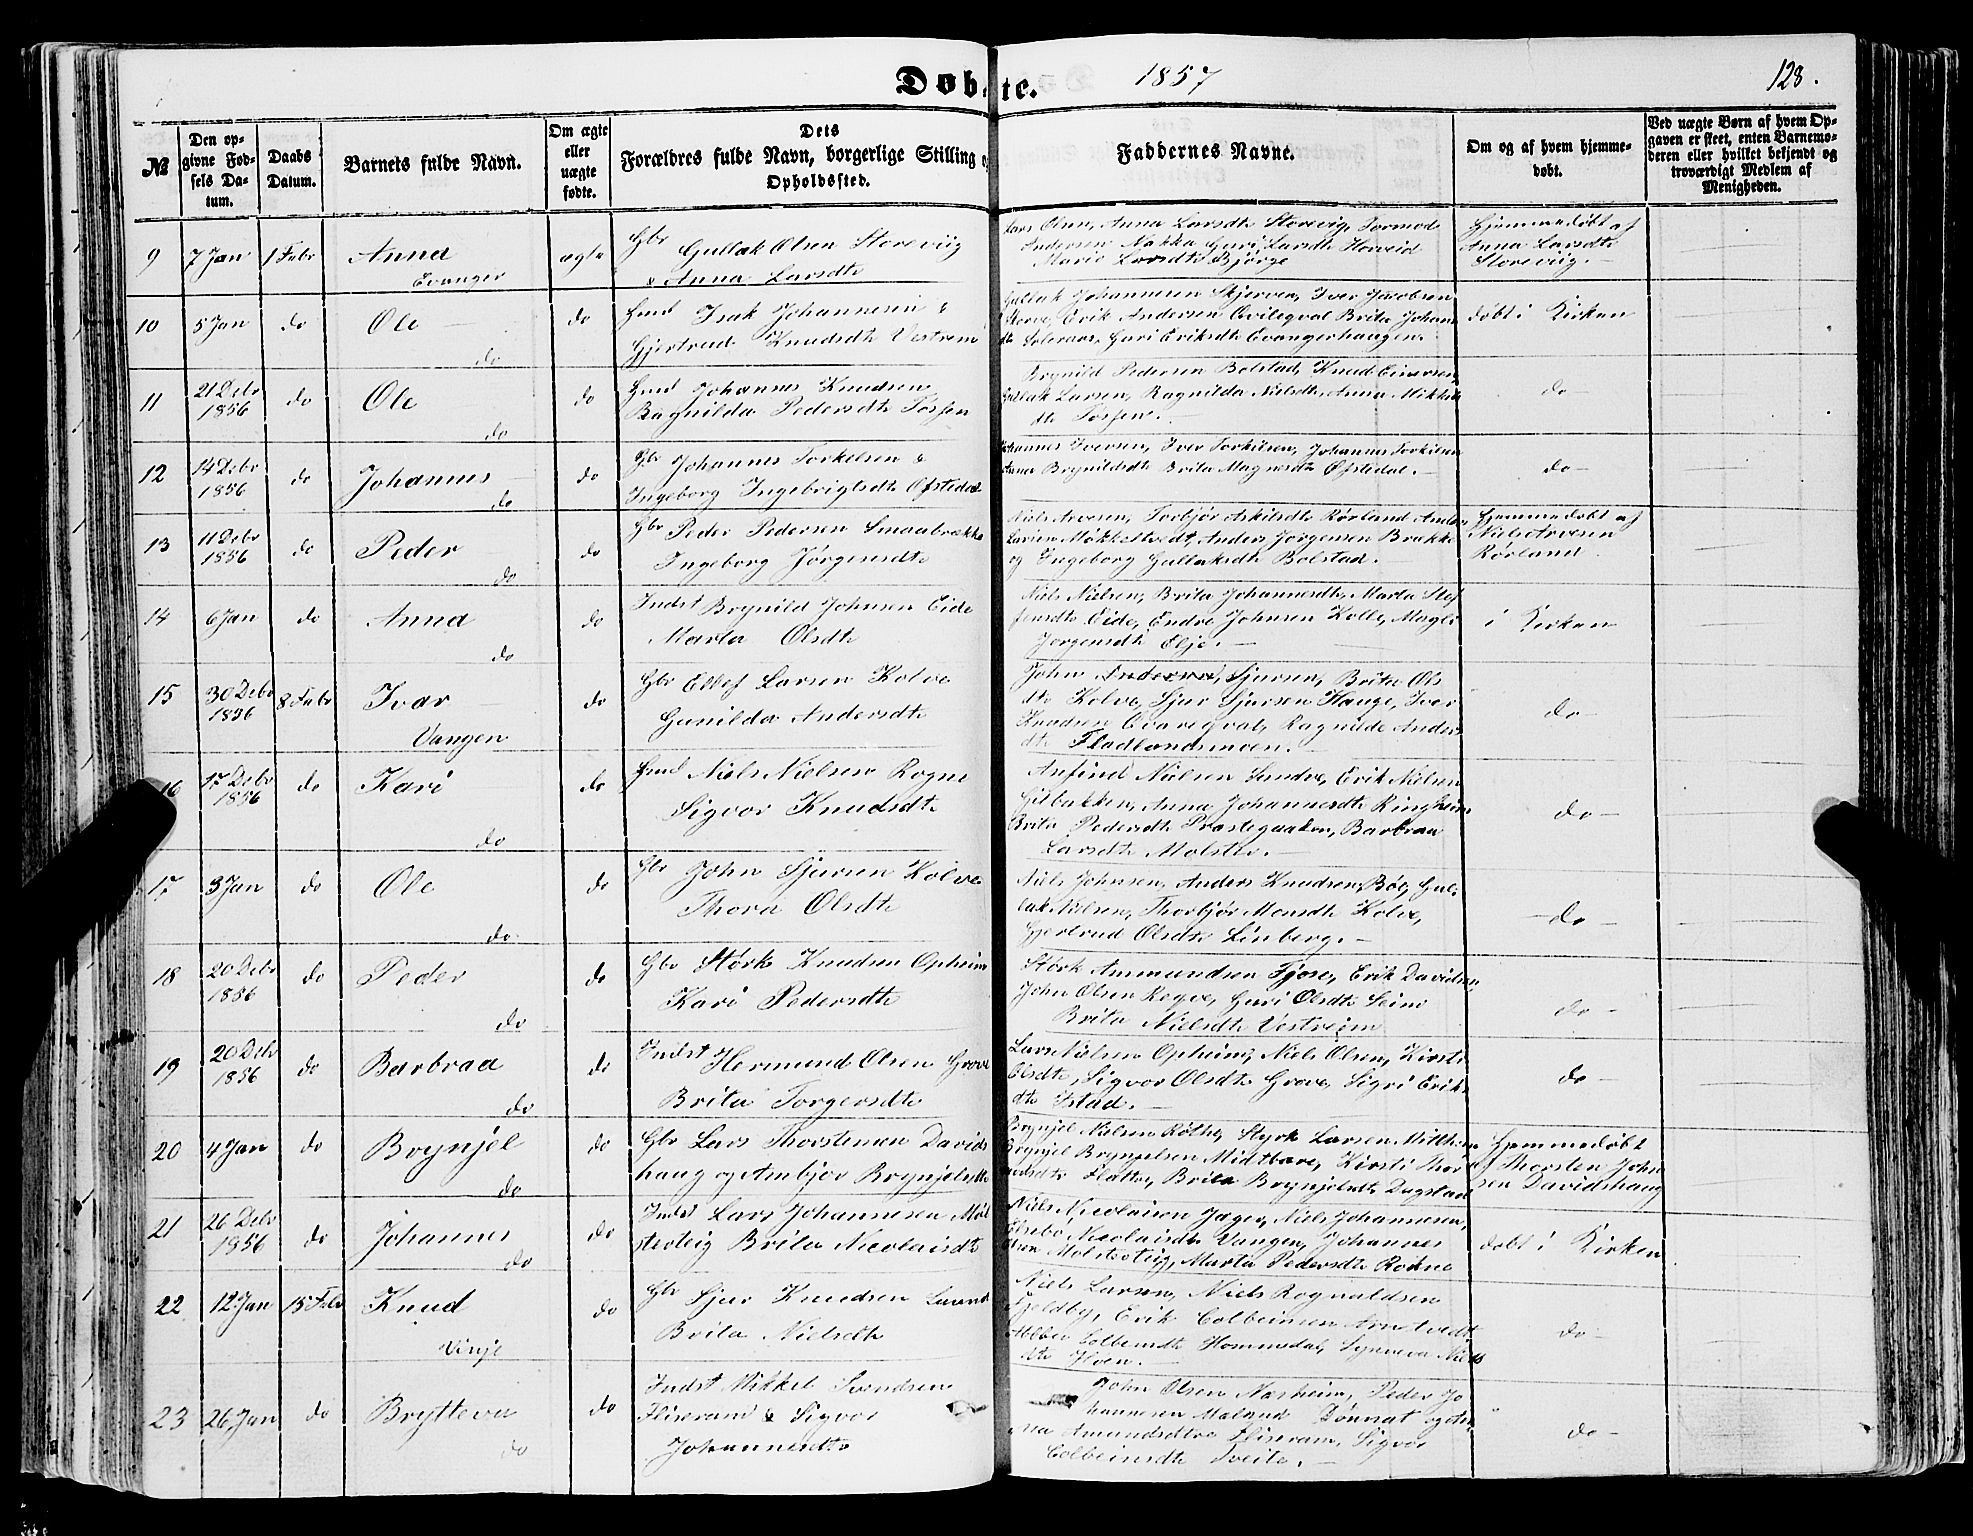 Døbte. 1857 128.
№
Den opgivne Fødsels Datum.
Daabs Datum.
Barnets fulde Navn.
Om ægte eller uægte fødte.
Dets Forældres fulde Navn, borgerlige Stilling
Opholdssted.
Faddernes Navne.
Om og af hvem hjemmedøbt.
Ved uægte Børn af hvem Opgaven er skeet, enten Barnemoderen eller hvilket bekjendt og troværdigt Medlem af Menigheden.
9 7 Jan 1 Febr Anna
Evanger
ægte
Gbr Gullak Olsen Storeviig
& Anna Larsdtr
Lars Olsen, Anna Larsdtr Storeviig, Tormod
Andersen Nakka Guri Larsdtr Horveid
Marie Larsdtr Bjørge
Hjemmedøbt af
Anna Larsdtr
Storeviig.
10 5 Jan do Ole
do
do
Isak Johannesen &
Gjertrud Knudsdtr Vestrem
Gullak Johannesen Skjerven, Iver Jacobsen
Horve, Erik Andersen Brita Johans
dtr Guri Eriksdtr Evangerhaugen.
døbt i Kirken
11 21 Debr
1856 do Ole
do
do
Johannes Knudsen
Ragnilda Pedersdtr Fosse
Brynild Pedersen Bolstad, Knud Einersen,
Gullak Larsen, Ragnilda Nielsdtr Anna Mikkels
dtr Fosse.
do
12 14 Debr
1856 do Johannes
do
do
Gbr Johannes Torkelsen &
Ingeborg Ingebrigtsdtr Øfstedal
Johannes Iversen, Iver Torkilsen, Johannes Torkilsen
Anna Brynildsdtr Brita Magnesdtr Øfstedal.
do
13 11 Debr
1856 do Peder
do
do
Gbr Peder Pedersen Smaabrække
Ingeborg Jørgensdtr
Niels Arvesen, Torbjør Askilsdtr Rørland Anders
Larsen Møkkestvedt, Anders Jørgensen Brække
og Ingeborg Gullaksdtr Bolstad.
Hjemmedøbt af
Niels Arvesen
Rørland
14 6 Jan do Anna
do
do
Indst Brynild Johnsen Eide
Marta Olsdtr
Niels Nielsen, Brita Johannesdtr, Marta Stef
fensdtr Eide, Endre Johnsen Kolle,
Jørgensdtr
i Kirken
15 30 Debr
1856 8 Febr Ivar
Vangen
do
Gbr Ellef Larsen Kolve
Gunilda Andersdtr
John Sjursen, Brita Ols
dtr Kolve, Sjur Sjursen Hauge, Iver
Knudsen Ragnilde Anders
dtr Fladlandsmoen.
do
16 17 Debr
1856 do Kari
do
do
Niels Nielsen Rogne
Sigvor Knudsdtr
Anfind Nielsen Sundve, Erik Nielsen
Gilbakken, Anna Johannesdtr Ringheim
Brita Pedersdtr Præstegaaden, Barbraa
Larsdtr Molster.
do
17 3 Jan do Ole
do
do
Gbr John Sjursen Kolve
Thora Olsdtr
Niels Johnsen, Anders Knudsen, Bøe, Gul-
lak Nielsen, Thorbjør Monsdtr Kolve,
Gjertrud Olsdtr Linberg.
do
18 20 Debr
1856 do Peder
do
do
Gbr Størk Knudsen Opheim
Kari Pedersdtr
Størk Ammundsen Fjose, Erik Davidsen,
John Olsen Regve, Guri Olsdtr Seim
Brita Nielsdtr Vestreim
do
19 20 Debr
1856 do Barbraa
do
do
Indst Hermund Olsen Grove
Brita Torgersdtr
Lars Nielsen Opheim, Niels Olsen, Kirsti
Olsdtr, Sigvor Olsdtr Grove, Sigri Eriks
dtr Istad.
do
20 4 Jan do Brynjel
do
do
Gbr Lars Thorstensen Davids
haug og Ambjør Brynjelsdtr
Brynjel Nielsen Røthe, Styrk Larsen
Brynjel Brynjelsen Midtbøre, Kirsti
Flatte, Brita Brynjelsdtr Dugstad
Hjemmedøbt
af Thorsten John
sen Davidshaug
21 26 Debr
1856 do Johannes
do
do
Indst Lars Johannesen Møl
sterteig Brita Nicolaisdtr
Niels Nicolaisen Jager, Niels Johannesen,
Elsebø Nicolaisdtr Vangen, Johannes
Olsen Molsterteig, Marta Pedersdtr Rokne
døbt i Kirken
22 12 Jan 15 Febr Knud
Vinje
do
Gbr Sjur Knudsen
Brita Nielsdtr
Niels Larsen, Niels Rognaldsen
Fjeldby, Erik Colbeinsen Arnetvedt
Colbeinsdtr Hommedal, Synneva Niels
dtr
do
23 26 Jan do Brytteva
do
do
Indst Mikkel Svendsen
Fliseram & Sigvor
Johannesdtr
John Olsen Næsheim, Peder Jo
hannesen Dønnat
Amundsdtr Fliseram, Sigvor
Colbeinsdtr Tveite.
do